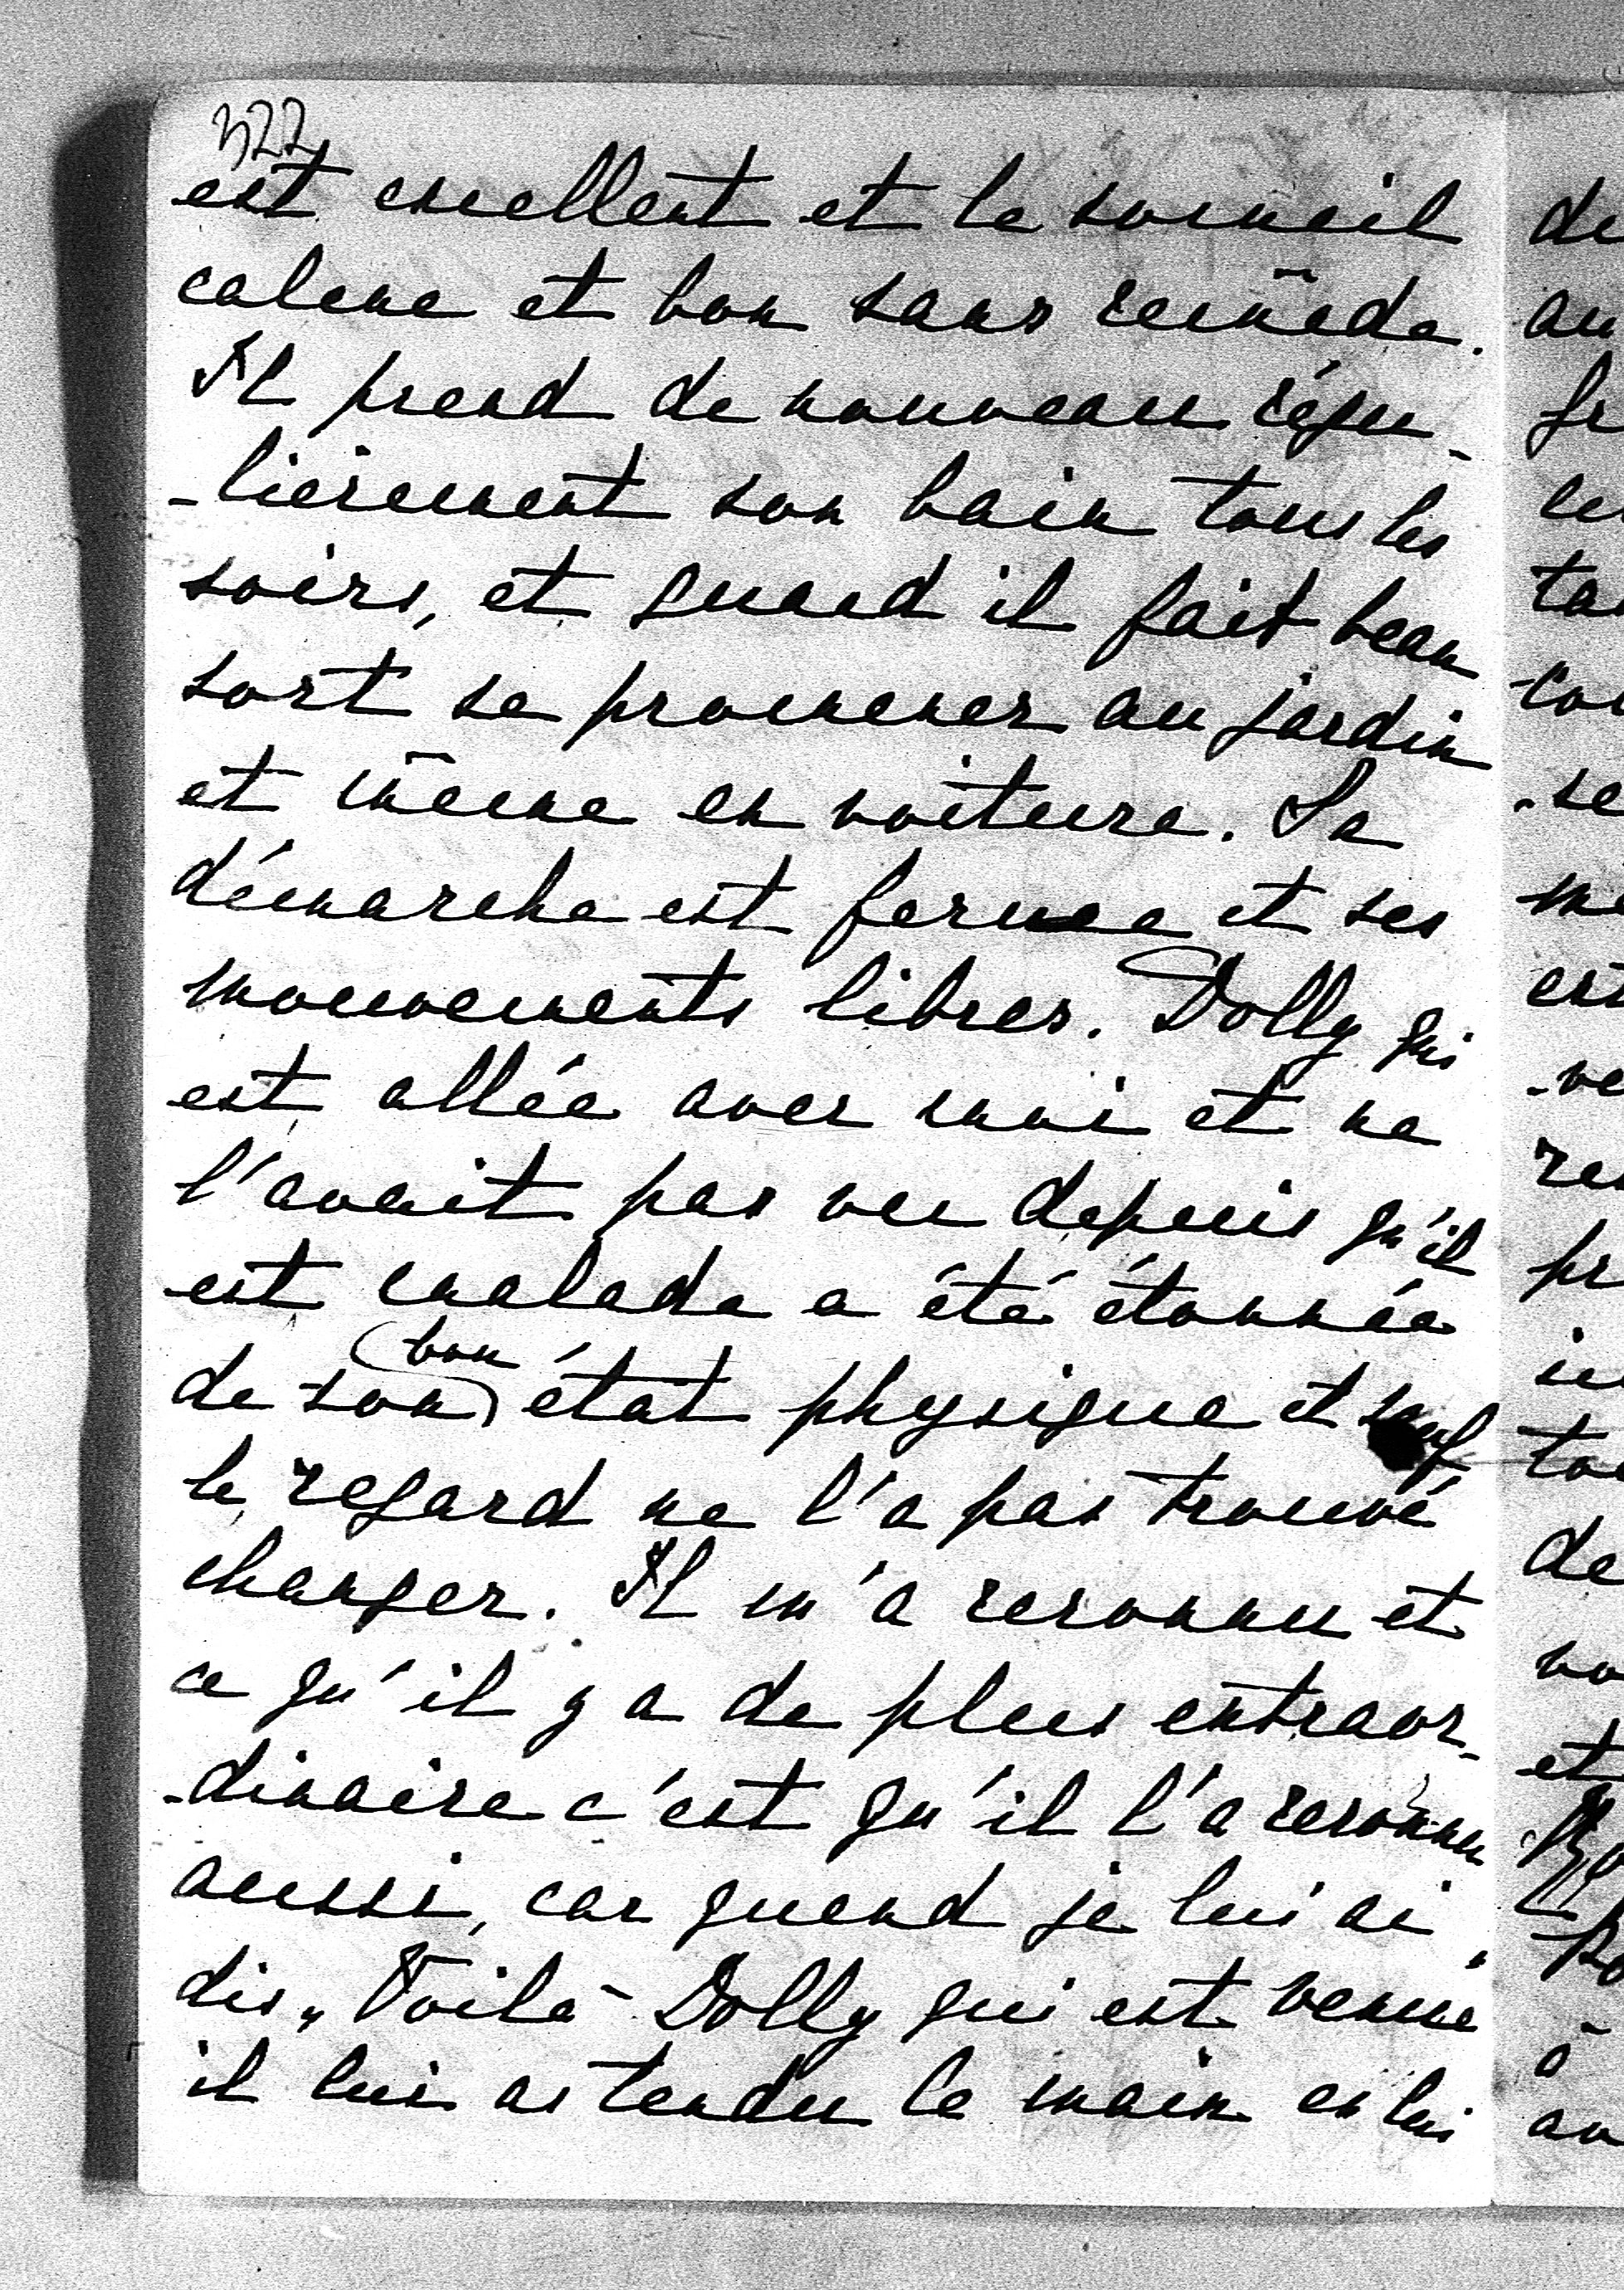 322
est excellent et le sommeil
calme et bon sans remède.
Il prend de nouveau régu-
-lièrement son bain tous les
soirs, et quand il fait beau
sort se promener au jardin
et même en voiture. Sa
démarche est ferme et ses
mouvements libres. Dolly qui
est allée avec moi et ne
l'avait pas vu depuis qu'il
est malade a été étonnée
de son bon état physique et sauf
le regard ne l'a pas trouvé
changer. Il m'a reconnu et
ce qu'il y a de plus extraor-
-dinaire c'est qu'il l'a reconnu
aussi, car quand je lui ai
dis „Voilà Dolly qui est venue"
il lui as tendu la main en lui